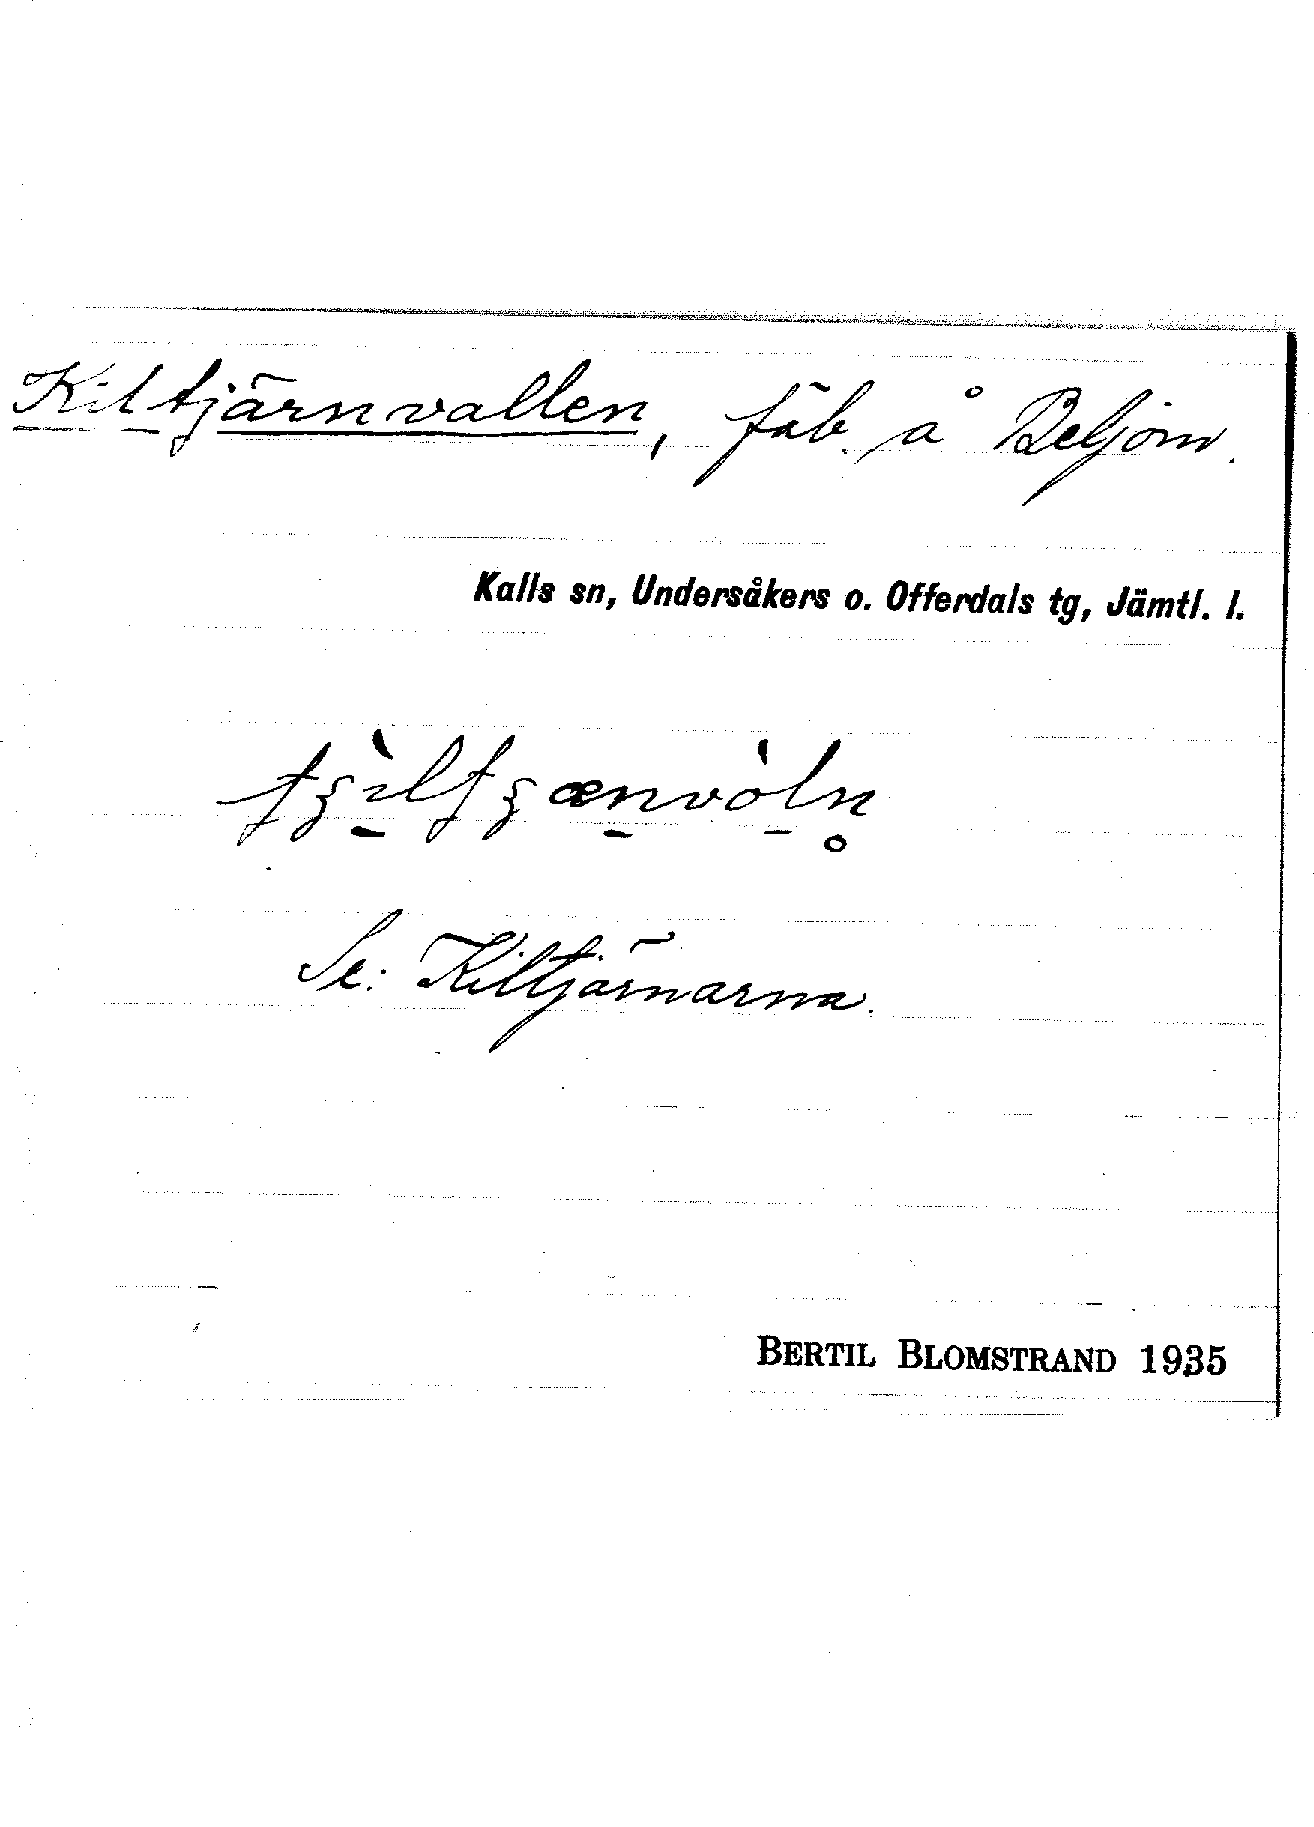 Kiltjärnvallen, fäb. å Beljom.
Kalls sn, Undersåkers o. Offerdals tg, Jämtl. l.
Se: Kiltjärnarna.
BERTIL BLOMSTRAND 1935